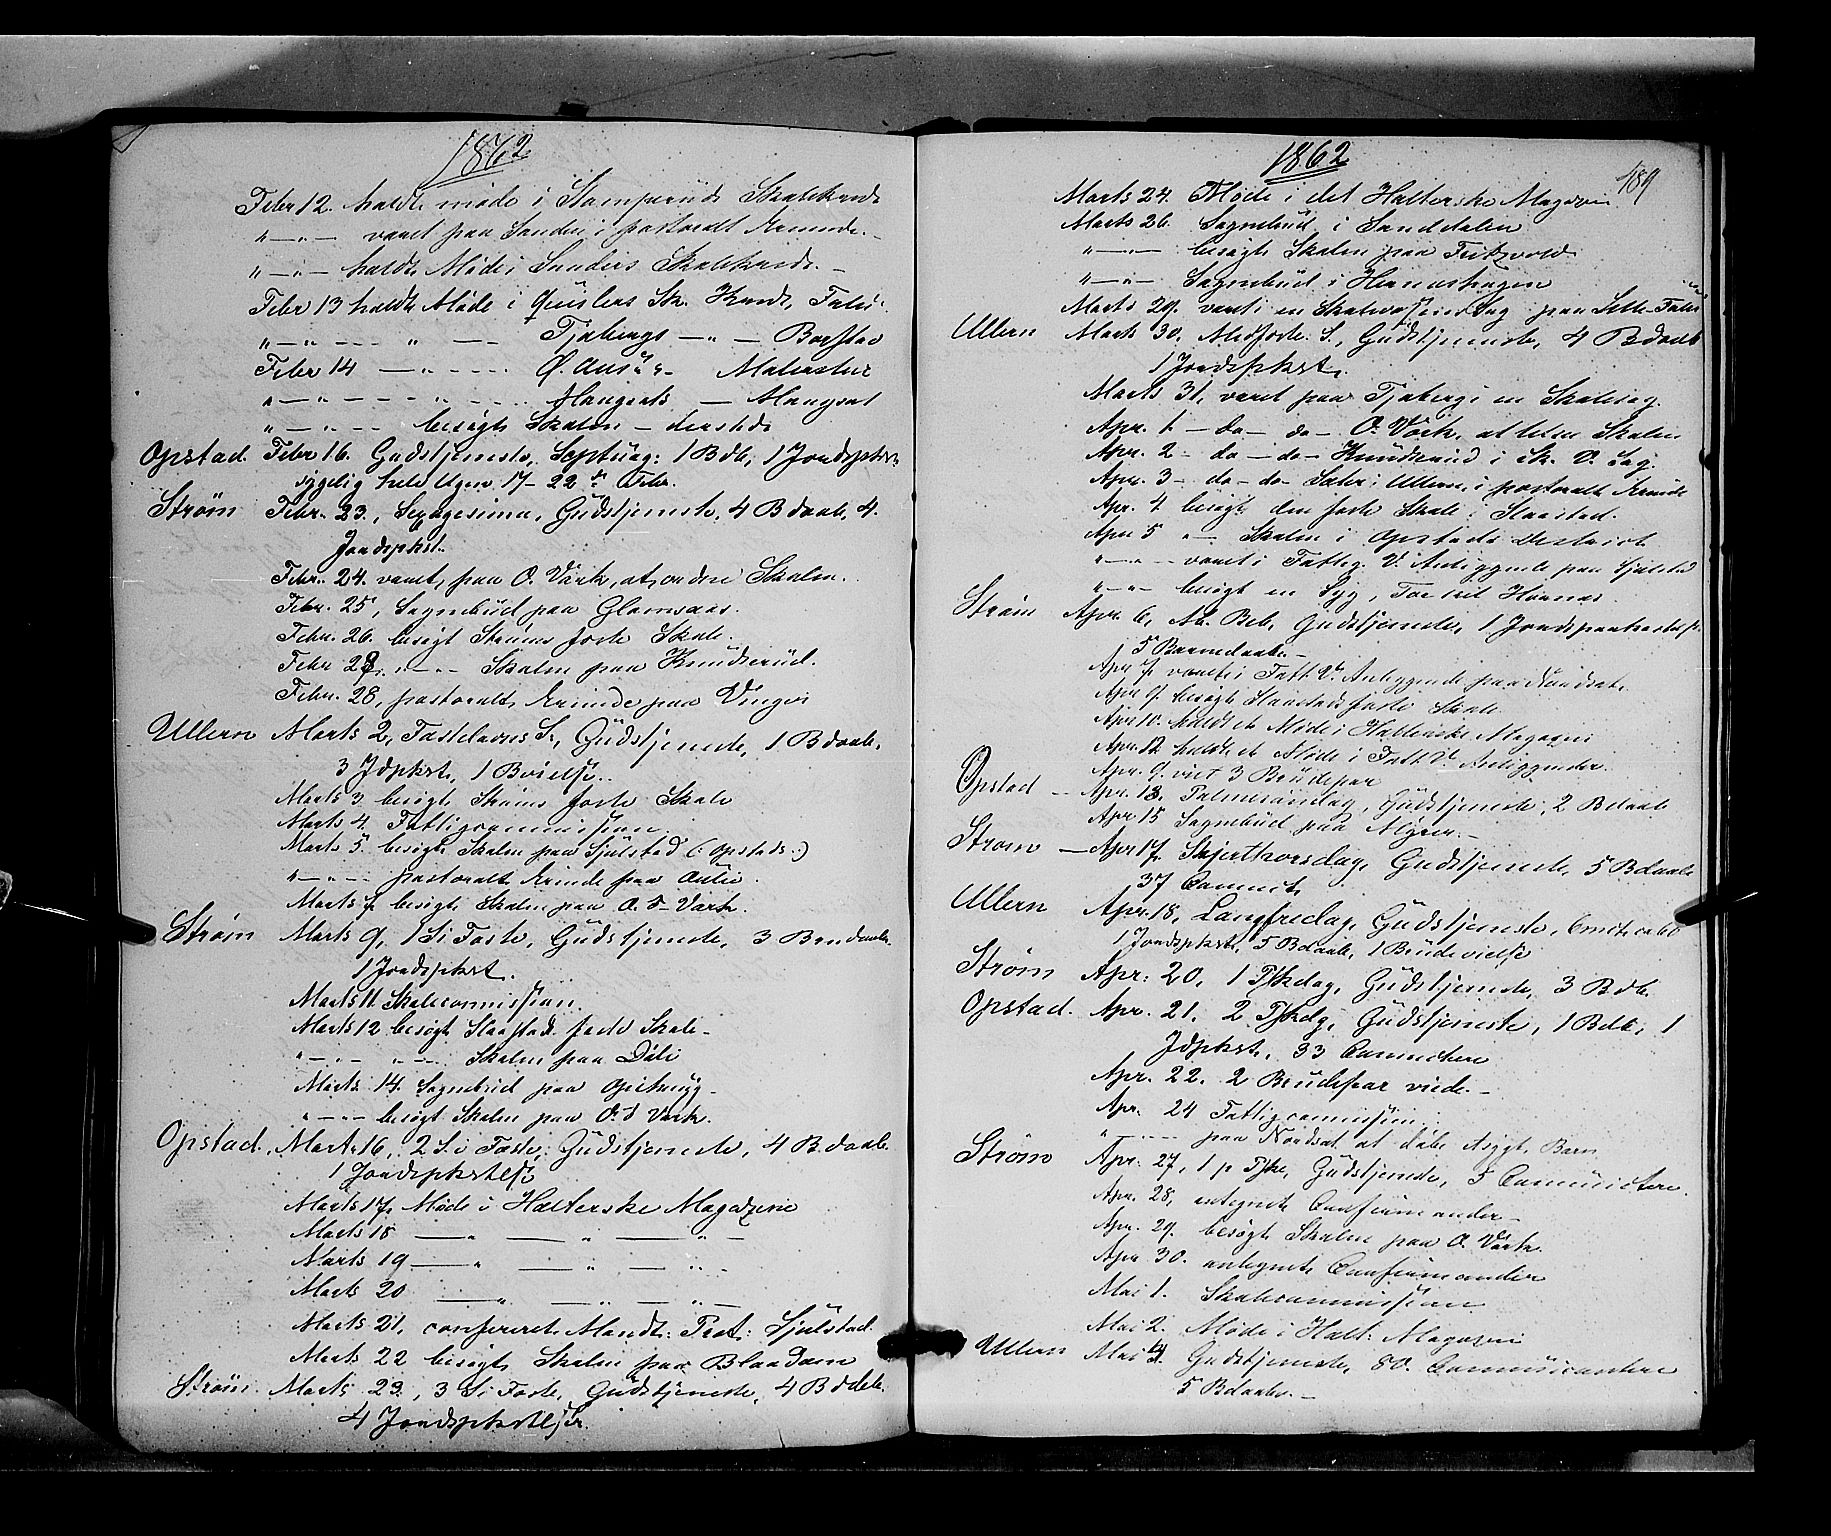 1862
Febr 12. holdt møde i Stomperuds Skolekreds
"—"— været paa Sanden i pastoralt Erinde.
"—"— holdt Møde i Sanders Skolekreds.—
Febr 13 holdt Møde i Skr. Kreds,
"—"— — " —
Febr 14 — " —
"—"—
"—"— besøgt Skolen — dersteds
Opstad. Febr 16. Gudstjeneste, Septuag: 1 Bdb, 1 Jordspkst
sygelig hele Ugen 17–22 Febr.
Strøm Febr. 23., Sexagesima, Gudstjeneste, 4 Bdaab, 4.
Jordspkst.
Febr. 24. været paa O. Værk, at ordne Skolen.
Febr. 25, Sognebud paa Glomsaas.
Febr. 26. besøgt Strøms faste Skole.
Febr 28, "—"— Skolen paa Knudserud.
Febr. 28, pastoralt Erinde paa Vinger
Ullern Marts 2, Fastelavns S., Gudstjeneste, 1 Bdaab.
3 Jdpkst, 1 Vielse.
Marts 3 besøgt Strøms faste Skole
Marts 4. Fattigcommission
Marts 5. besøgt Skolen paa Sjulstad (: Opstads :)
"—"— pastoralt Erinde paa
Marts 7 besøgt Skolen paa O.S. Værk.
Strøm Marts 9, 1 S. i Faste, Gudstjeneste, 3 Bdaab.
1 Jordspkst.
Marts 11 Skolecommission
Marts 12 besøgt Slaastad faste Skole.
"—"— "—"— Skolen paa Dali
Marts 14. Sognebud paa
"—"— besøgt Skolen paa O.S. Værk.
Opstad. Marts 16, 2 S. i Faste, Gudstjeneste, 4 Bdaab.
1 Jordspkstelse
Marts 17, Møde i Holterske Magazine
Marts 18 — " — " —
Marts 19 — " — " —
Marts 20 — " — " —
Marts 21, confereret Mandt. Prot. Sjulstad.
Marts 22 besøgt Skolen paa Blaadam
Strøm. Marts 23., 3 S. i Faste, Gudstjeneste, 4 Bdb.
4 Jordspkstelser.
1862
189
Marts 24. Møde i det Holterske Magazin
Marts 26. Sognebud i Sanddalen
"—"— besøgt Skolen paa Fritzvold
"—"— Sognebud i
Marts 29. været i en Skolevæsens Sag paa
Ullern Marts 30. Midfaste S., Gudstjeneste, 4 Bdaab
1 Jordspkst.
Marts 31, været paa Tjaberg i en Skolesag.
Apr. 1 — do — do — O. Værk, at Skolen
Apr. 2 — do — do — Knudserud i Sk. V. Sag.
Apr. 3 — do — do Sæter i Ullern, i pastoralt Erinde
Apr. 4 besøgt den faste Skole i Slaastad.
Apr 5 "— Skolen i Opstads District
"—"— været i Fattig V. Anliggende paa Sjulstad
"—"— besøgt en Syg,
Strøm Apr. 6, Gudstjeneste, 1 Jordspaakastelse.
5 Barnedaab.—
Apr 7, været i Fatt V. Anliggende paa Nordset.
Apr 9. besøgt Slaastads faste Skole
Apr 10. holdt et Møde i Holterske Magazin
Apr. 12 holdt et Møde i Fatt. V. Anliggender.
Apr. 9. viet 3 Brudepar
Opstad — Apr. 13. Palmesøndag, Gudstjeneste, 2 Bdaab
Apr 15 Sognebud paa Myrer.—
Strøm — Apr 17, Skjærthorsdag, Gudstjeneste, 5 Bdaab
37 Commct.
Ullern Apr. 18, Langfredag, Gudstjeneste, Cmct ca 60
1 Jordspkst, 5 Bdaab, 1 Brudevielse
Strøm Apr: 20, 1 Pskdag, Gudstjeneste, 3 Bdb.
Opstad. Apr. 21. 2 Pskdg, Gudstjeneste, 1 Bdb, 1
Jdpkst. 33 Commctere
Apr. 22. 2 Brudepar viede.—
Apr. 24 Fattigcommission.
"—"— paa Nordset at døbe et sygt Barn
Strøm Apr. 27, 1 p Pske, Gudstjeneste, 5 Communictere.
Apr. 28, antegnet Confirmander—
Apr. 29. besøgt Skolen paa O. Værk.
Apr 30. antegnet Confirmander
Mai 1. Skolecommission
Mai 2. Møde i Holt. Magazin
Ullern Mai 4. Gudstjeneste, 80. Communicantere
5 Bdaab.—